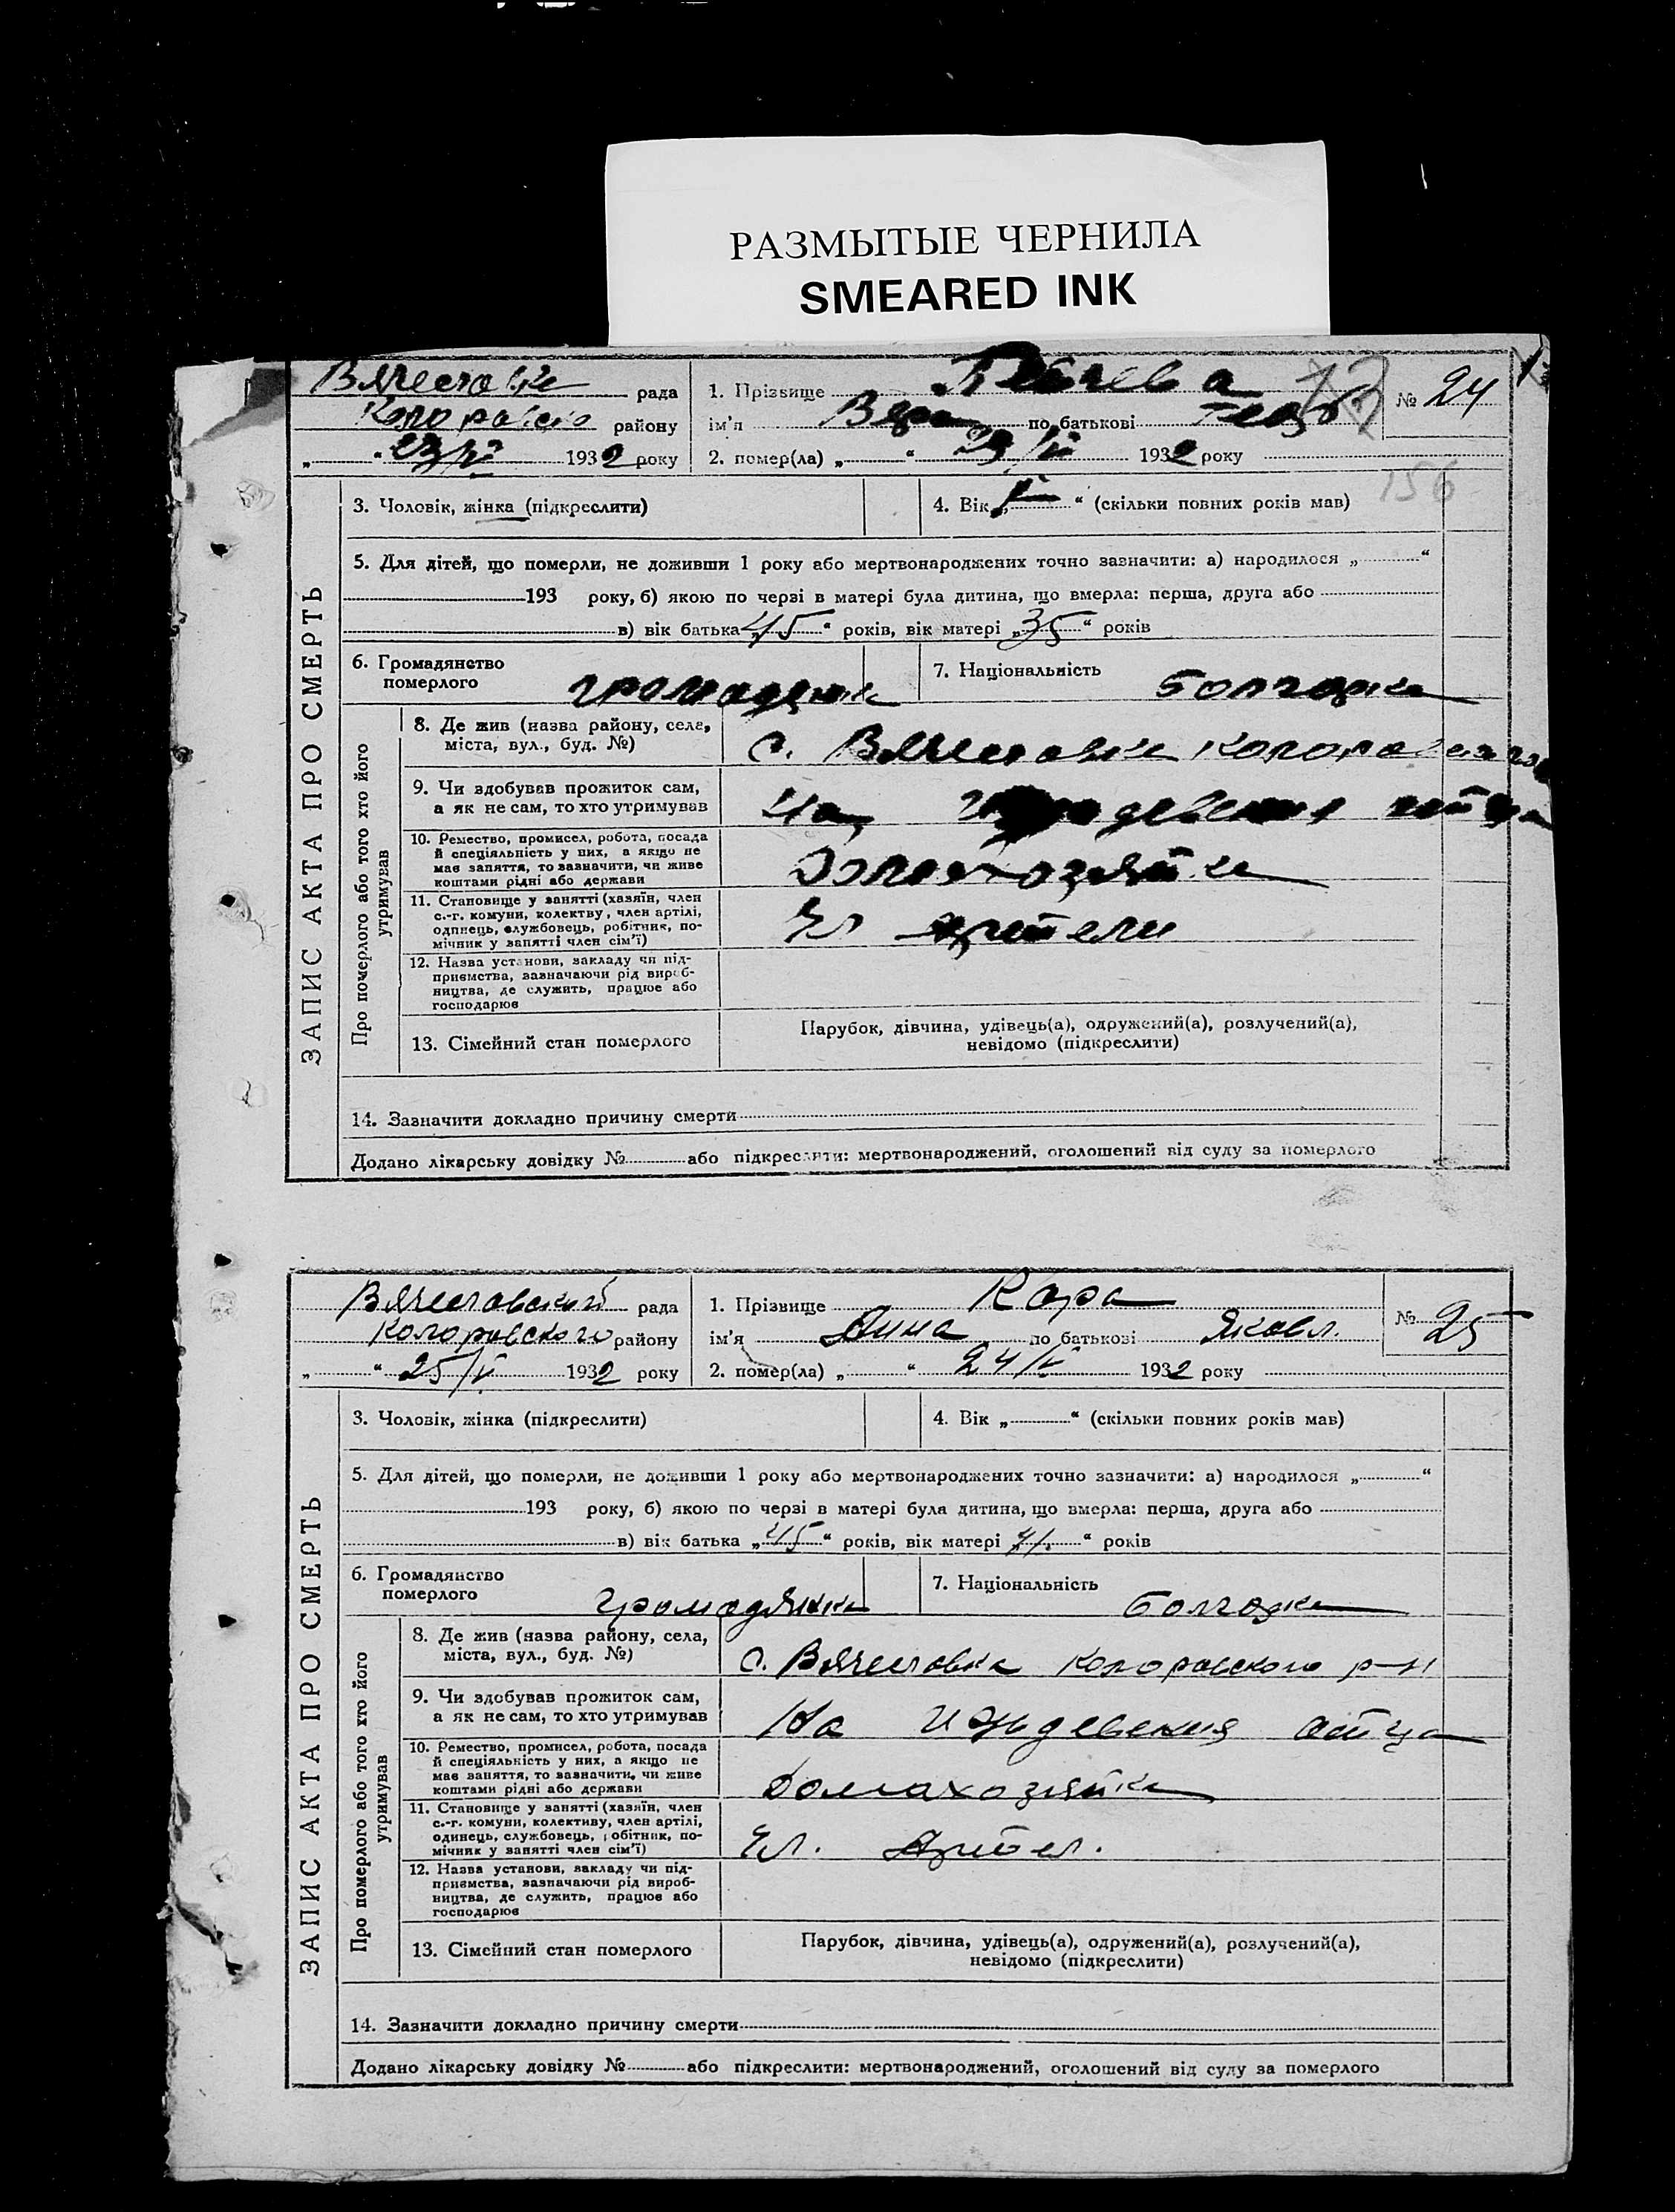 РАЗМЫТЫЕ ЧЕРНИЛА
SMEARED INK
Вячеславка рада
района району
23/V 1932 року
1. Прізвище
№ 24
ім'я Вера по батькові Георг.
2. помер(ла) „ “ 23/V 1932 року
156
ЗАПИС АКТА ПРО СМЕРТЬ
3. Чоловік, жінка (підкреслити)
4. Вік „ “ (скільки повних років мав)
5. Для дітей, що померли, не доживши 1 року або мертвонароджених точно зазначити: а) народилося „ “
193 року, б) якою по черзі в матері була дитина, що вмерла: перша, друга або
в) вік батька „45“ років, вік матері „35“ років
6. Громадянство померлого
громадянка
7. Національність болгарка
Про померлого або того хто його утримував
8. Де жив (назва району, села, міста, вул., буд. №)
с. Вячеславка Коларовского
9. Чи здобував прожиток сам, а як не сам, то хто утримував
На иждевения отца
10. Ремество, промисел, робота, посада й спеціяльність у них, а якщо не має заняття, то зазначити, чи живе коштами рідні або держави
Домохозяйка
11. Становище у занятті (хазяїн, член с.-г. комуни, колектву, член артілі, одинець, службовець, робітник, помічник у занятті член сім'ї)
Чл артели
12. Назва установи, закладу чи підприємства, зазначаючи рід виробництва, де служить, працює або господарює
13. Сімейний стан померлого
Парубок, дівчина, удівець(а), одружений(а), розлучений(а),
невідомо (підкреслити)
14. Зазначити докладно причину смерти
Додано лікарську довідку № або підкреслити: мертвонароджений, оголошений від суду за померлого
Вячеславский рада
Коларовского району
„ “ 25/V 1932 року
1. Прізвище Кара
№ 25
ім'я Анна по батькові Яковл.
2. помер(ла) „ “ 24/V 1932 року
ЗАПИС АКТА ПРО СМЕРТЬ
3. Чоловік, жінка (підкреслити)
4. Вік „ “ (скільки повних років мав)
5. Для дітей, що померли, не доживши 1 року або мертвонароджених точно зазначити: а) народилося „ “
193 року, б) якою по черзі в матері була дитина, що вмерла: перша, друга або
в) вік батька „45“ років, вік матері „41.“ років
6. Громадянство померлого
громадянка
7. Національність
болгарка
Про померлого або того хто його утримував
8. Де жив (назва району, села, міста, вул., буд. №)
с. Вячеславка Коларовского р-н
9. Чи здобував прожиток сам, а як не сам, то хто утримував
На иждевения отца
10. Ремество, промисел, робота, посада й спеціяльність у них, а якщо не має заняття, то зазначити, чи живе коштами рідні або держави
Домахозяйка
11. Становище у занятті (хазяїн, член с.-г. комуни, колективу, член артілі, одинець, службовець, робітник, помічник у занятті член сім'ї)
Чл. Артел.
12. Назва установи, закладу чи підприємства, зазначаючи рід виробництва, де служить, працює або господарює
13. Сімейний стан померлого
Парубок, дівчина, удівець(а), одружений(а), розлучений(а),
невідомо (підкреслити)
14. Зазначити докладно причину смерти
Додано лікарську довідку № або підкреслити: мертвонароджений, оголошений від суду за померлого